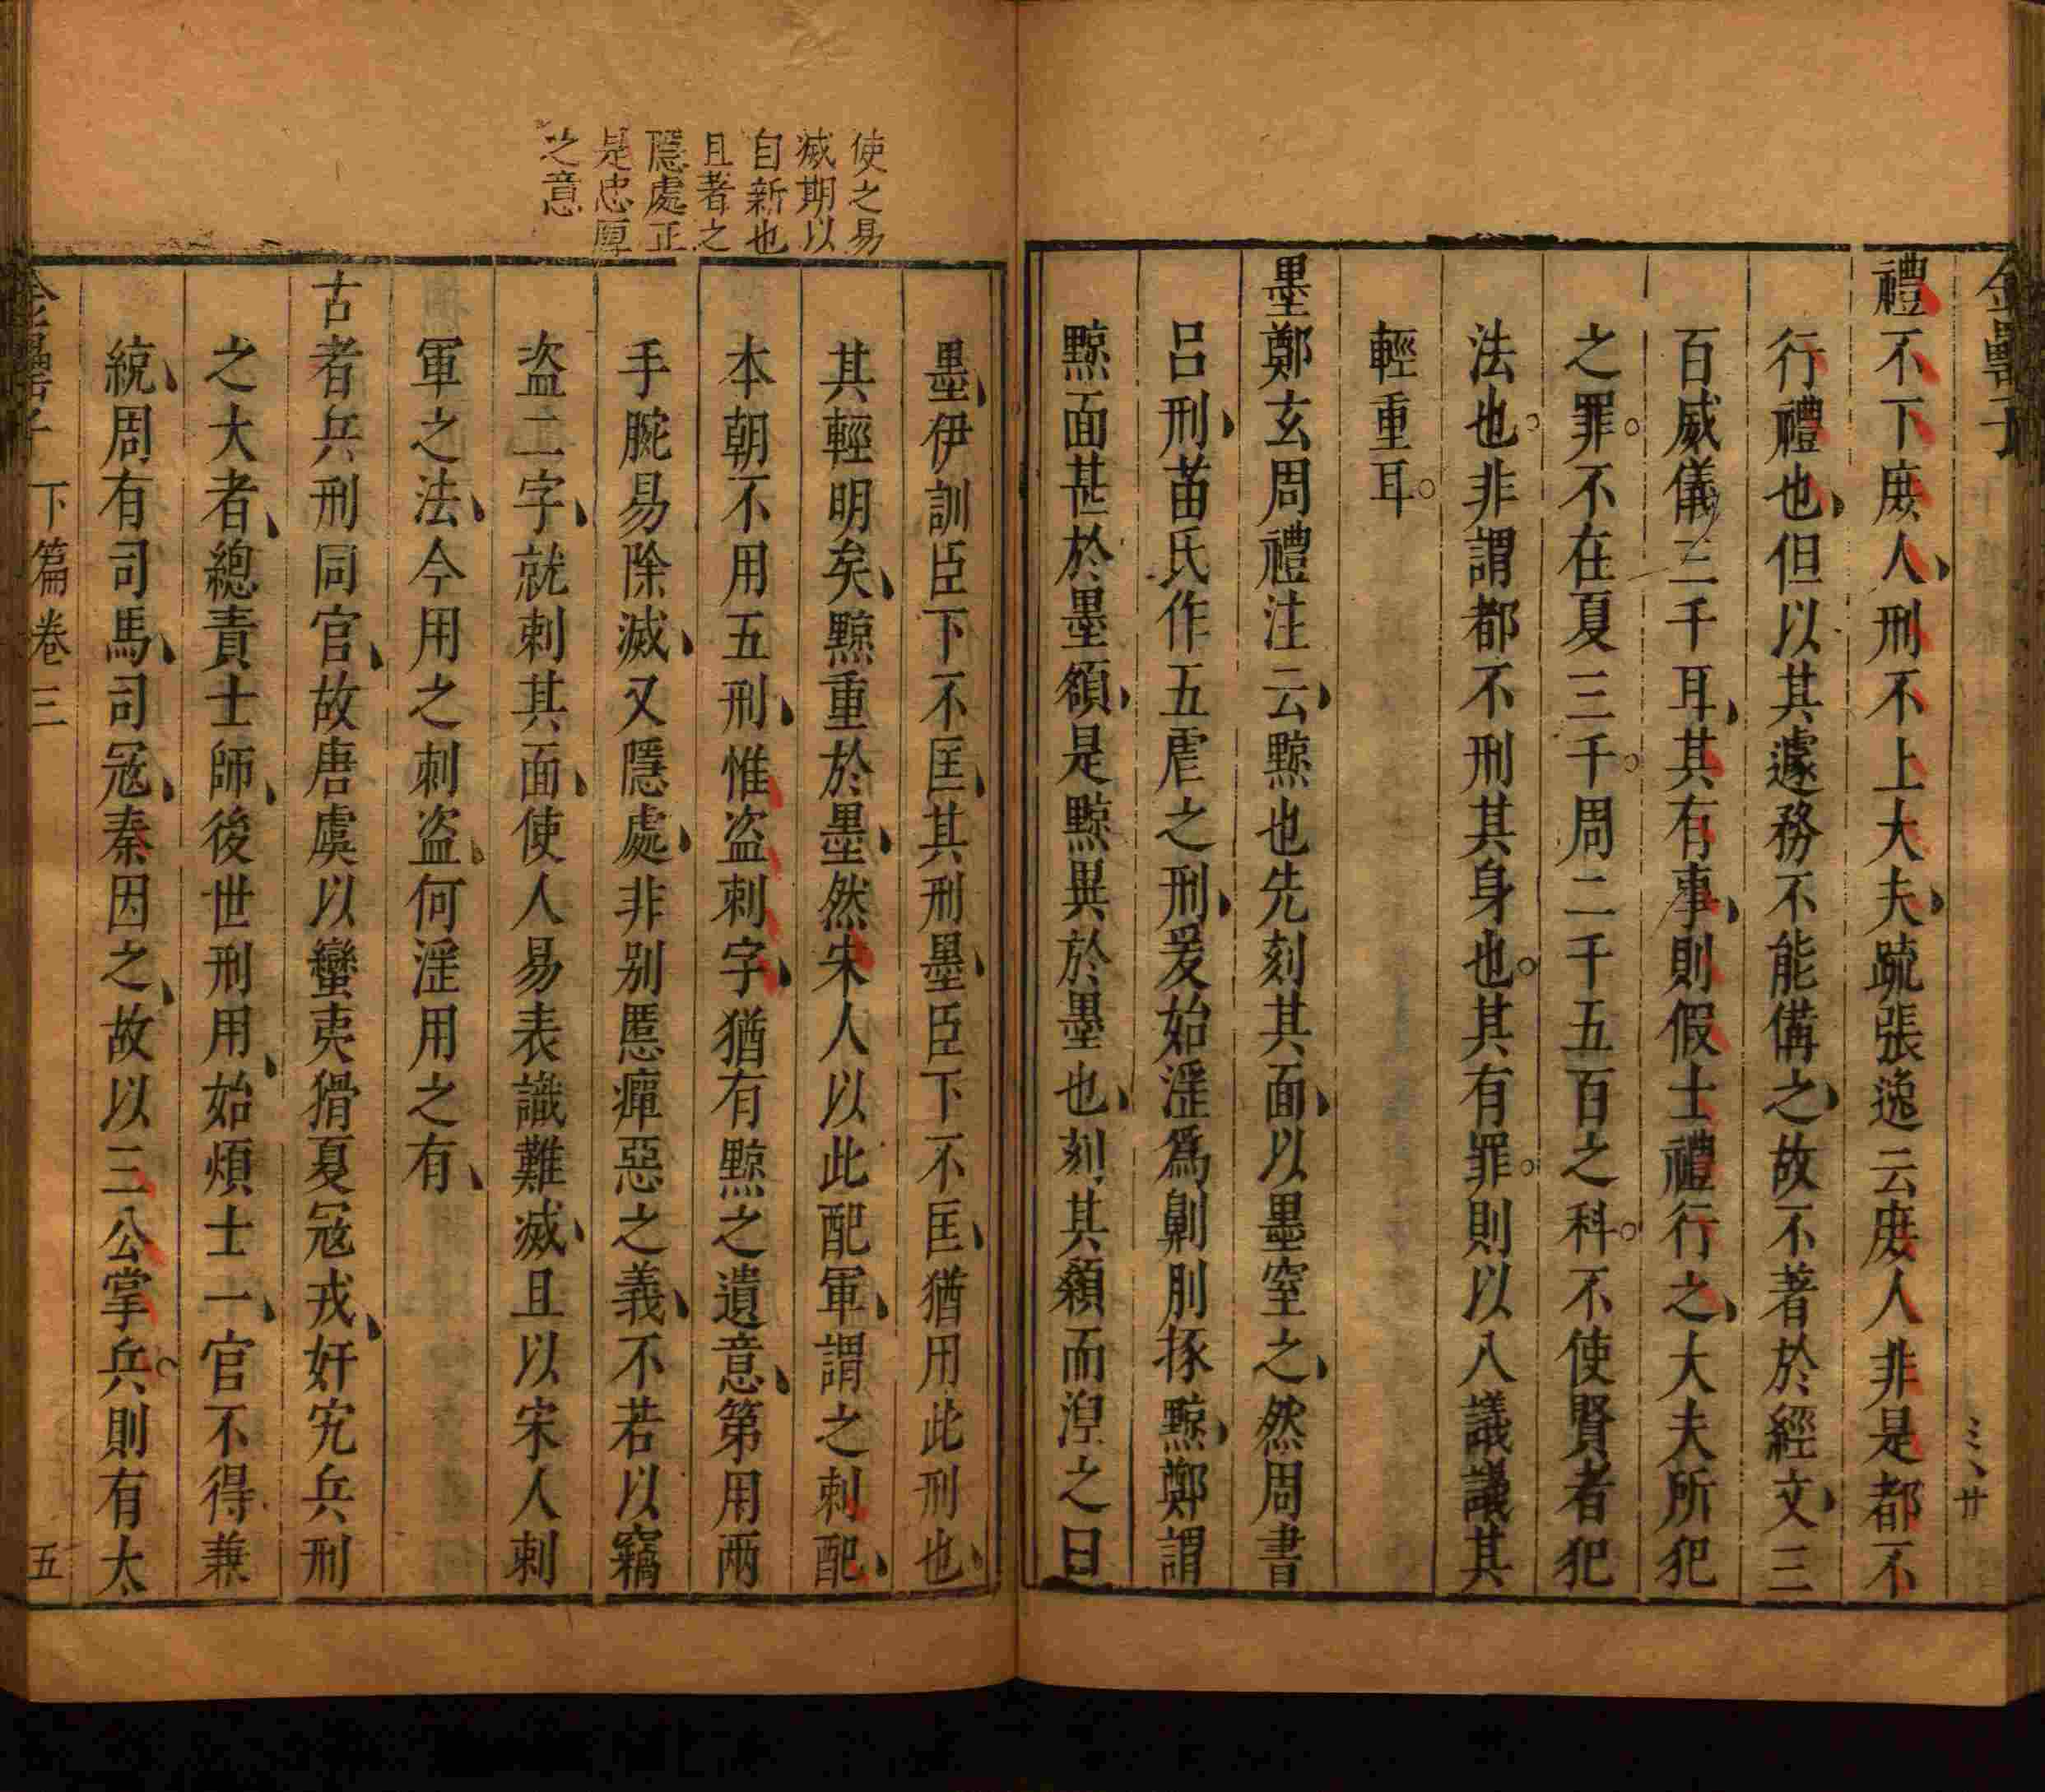 金罍子
三、廿
禮不下庻人、刑不上大夫、䟽張逸云庻人非是都不
行禮也、但以其遽務不能備之、故不著於經文、三
百威儀三千耳、其有事、則假士禮行之、大夫所犯
之罪。不在夏三千。周二千五百之科。不使賢者犯
法也。非謂都不刑其身也。其有罪。則以八議議其
輕重耳。
墨鄭玄周禮注云、黥也先刻其面、以墨窒之、然周書
呂刑、苗氏作五虐之刑、爰始淫爲劓刖椓黥、鄭謂
黥面甚於墨額、是黥異於墨也、刻其顙而湼之曰
使之易
滅期以
自新也
且著之
隱處正
是忠厚
之意
墨、伊訓臣下不匡、其刑墨、臣下不匡、猶用此刑也、
其輕明矣、黥重於墨、然宋人以此配軍、謂之刺配、
本朝不用五刑、惟盗刺字、猶有黥之遺意、第用兩
手腕易除滅、又隱處、非别慝癉惡之義、不若以竊
盗二字、就刺其面、使人易表識難滅、且以宋人刺
軍之法、今用之刺盗、何淫用之有、
古者兵刑同官、故唐虞以蠻夷猾夏冦戎、奸宄兵刑
之大者、總責士師、後世刑用、始煩士一、官不得兼
統、周有司馬、司冦、秦因之、故以三公掌兵。則有太
金罍子
下篇卷三
五